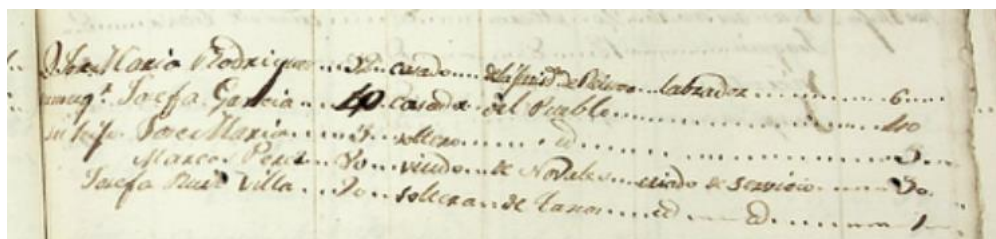 D. Jose Maria Rodriguez casado labrador 6
Josefa Garcia 40 casada del Pueblo 40
su hijo Jose Maria 3 soltero id 3
Marcos Perez 30 viudo de Novales criado de servicio 30
Josefa Ruiz Villa 20 soltera de id id 1